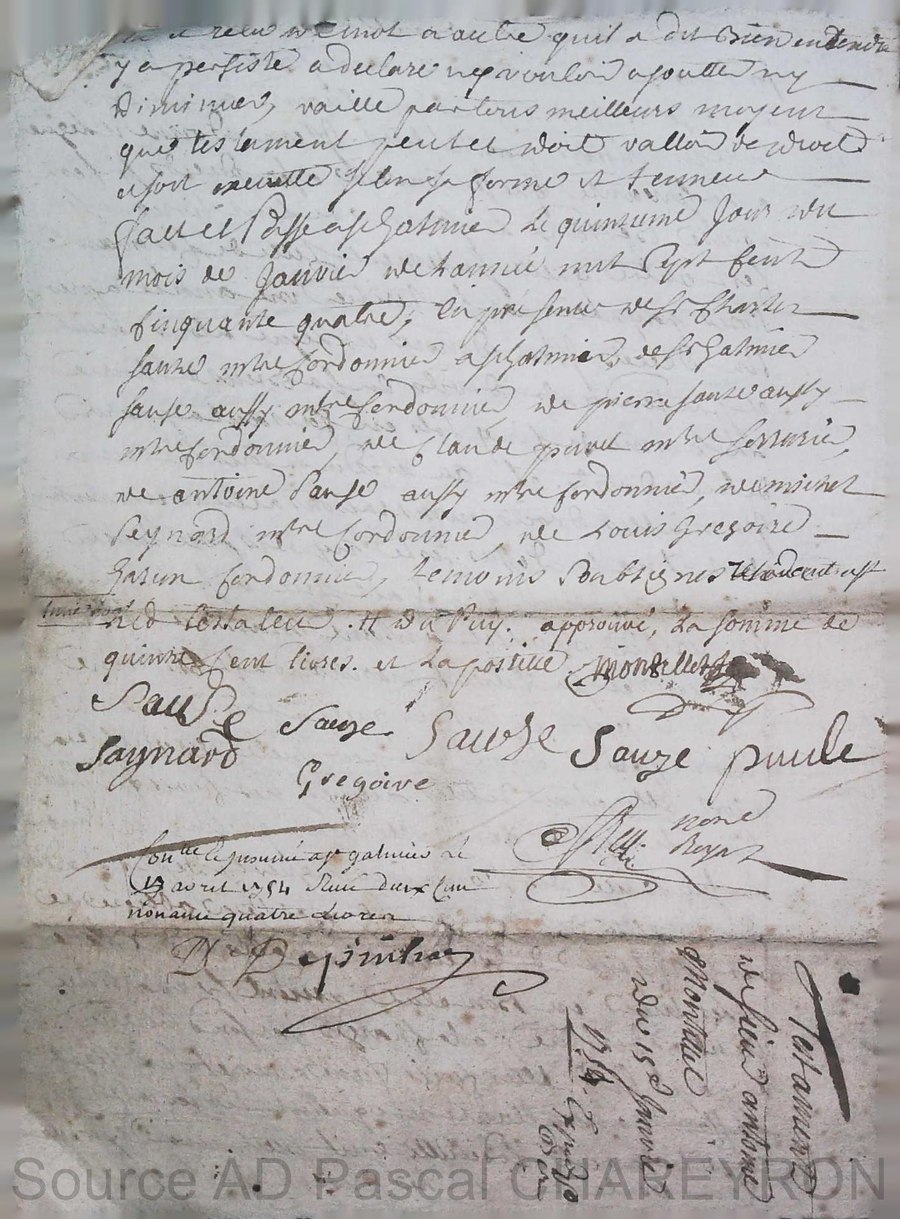 et releu de mot a autre qu'il a dit Bien entendre
y a persisté a declaré ny vouloir ajoutter ny
Diminuer, vaille par tous meilleurs moyens
que testament peut et doit valloir de droit
et soit executté selon sa forme et teneur
fait et Passé a st Galmier Le quinzieme Jour du
mois de Janvier de L'année mil Sept Cents
Cinquante quatre, En présence de sr Charles
sauze mtre Cordonnier a st Galmier, de sr Galmier
sauze aussy mtre Cordonnier, de pierre sauze aussy
mtre Cordonnier, de Claude mtre serrurier,
de antoine sauze aussy mtre Cordonnier, de michel
Peynard mtre Cordonnier, de Louis Gregoire
Garçon Cordonnier, temoins Soubsignes
Led testateur .tt Du Puy. approuvé, La somme de
quinze Cent livres. et La postille
Sauze
Sauze
Sauze
Sauze
Saynard
Gregoire
none
Royal
Con.lle a st galmier Le
13 avril 1754 Reçu
nonante quatre Livres
Testament
de feu Sr antoine
Montellier
Du 15e Janvier
1754 Expedié
Source AD Pascal CHAREYRON